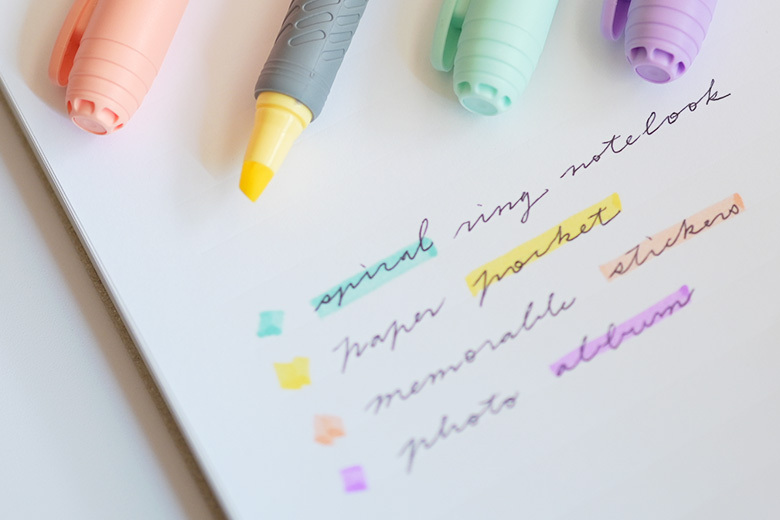 spiral ring notebook
paper pocket
memorable stickers
photo album